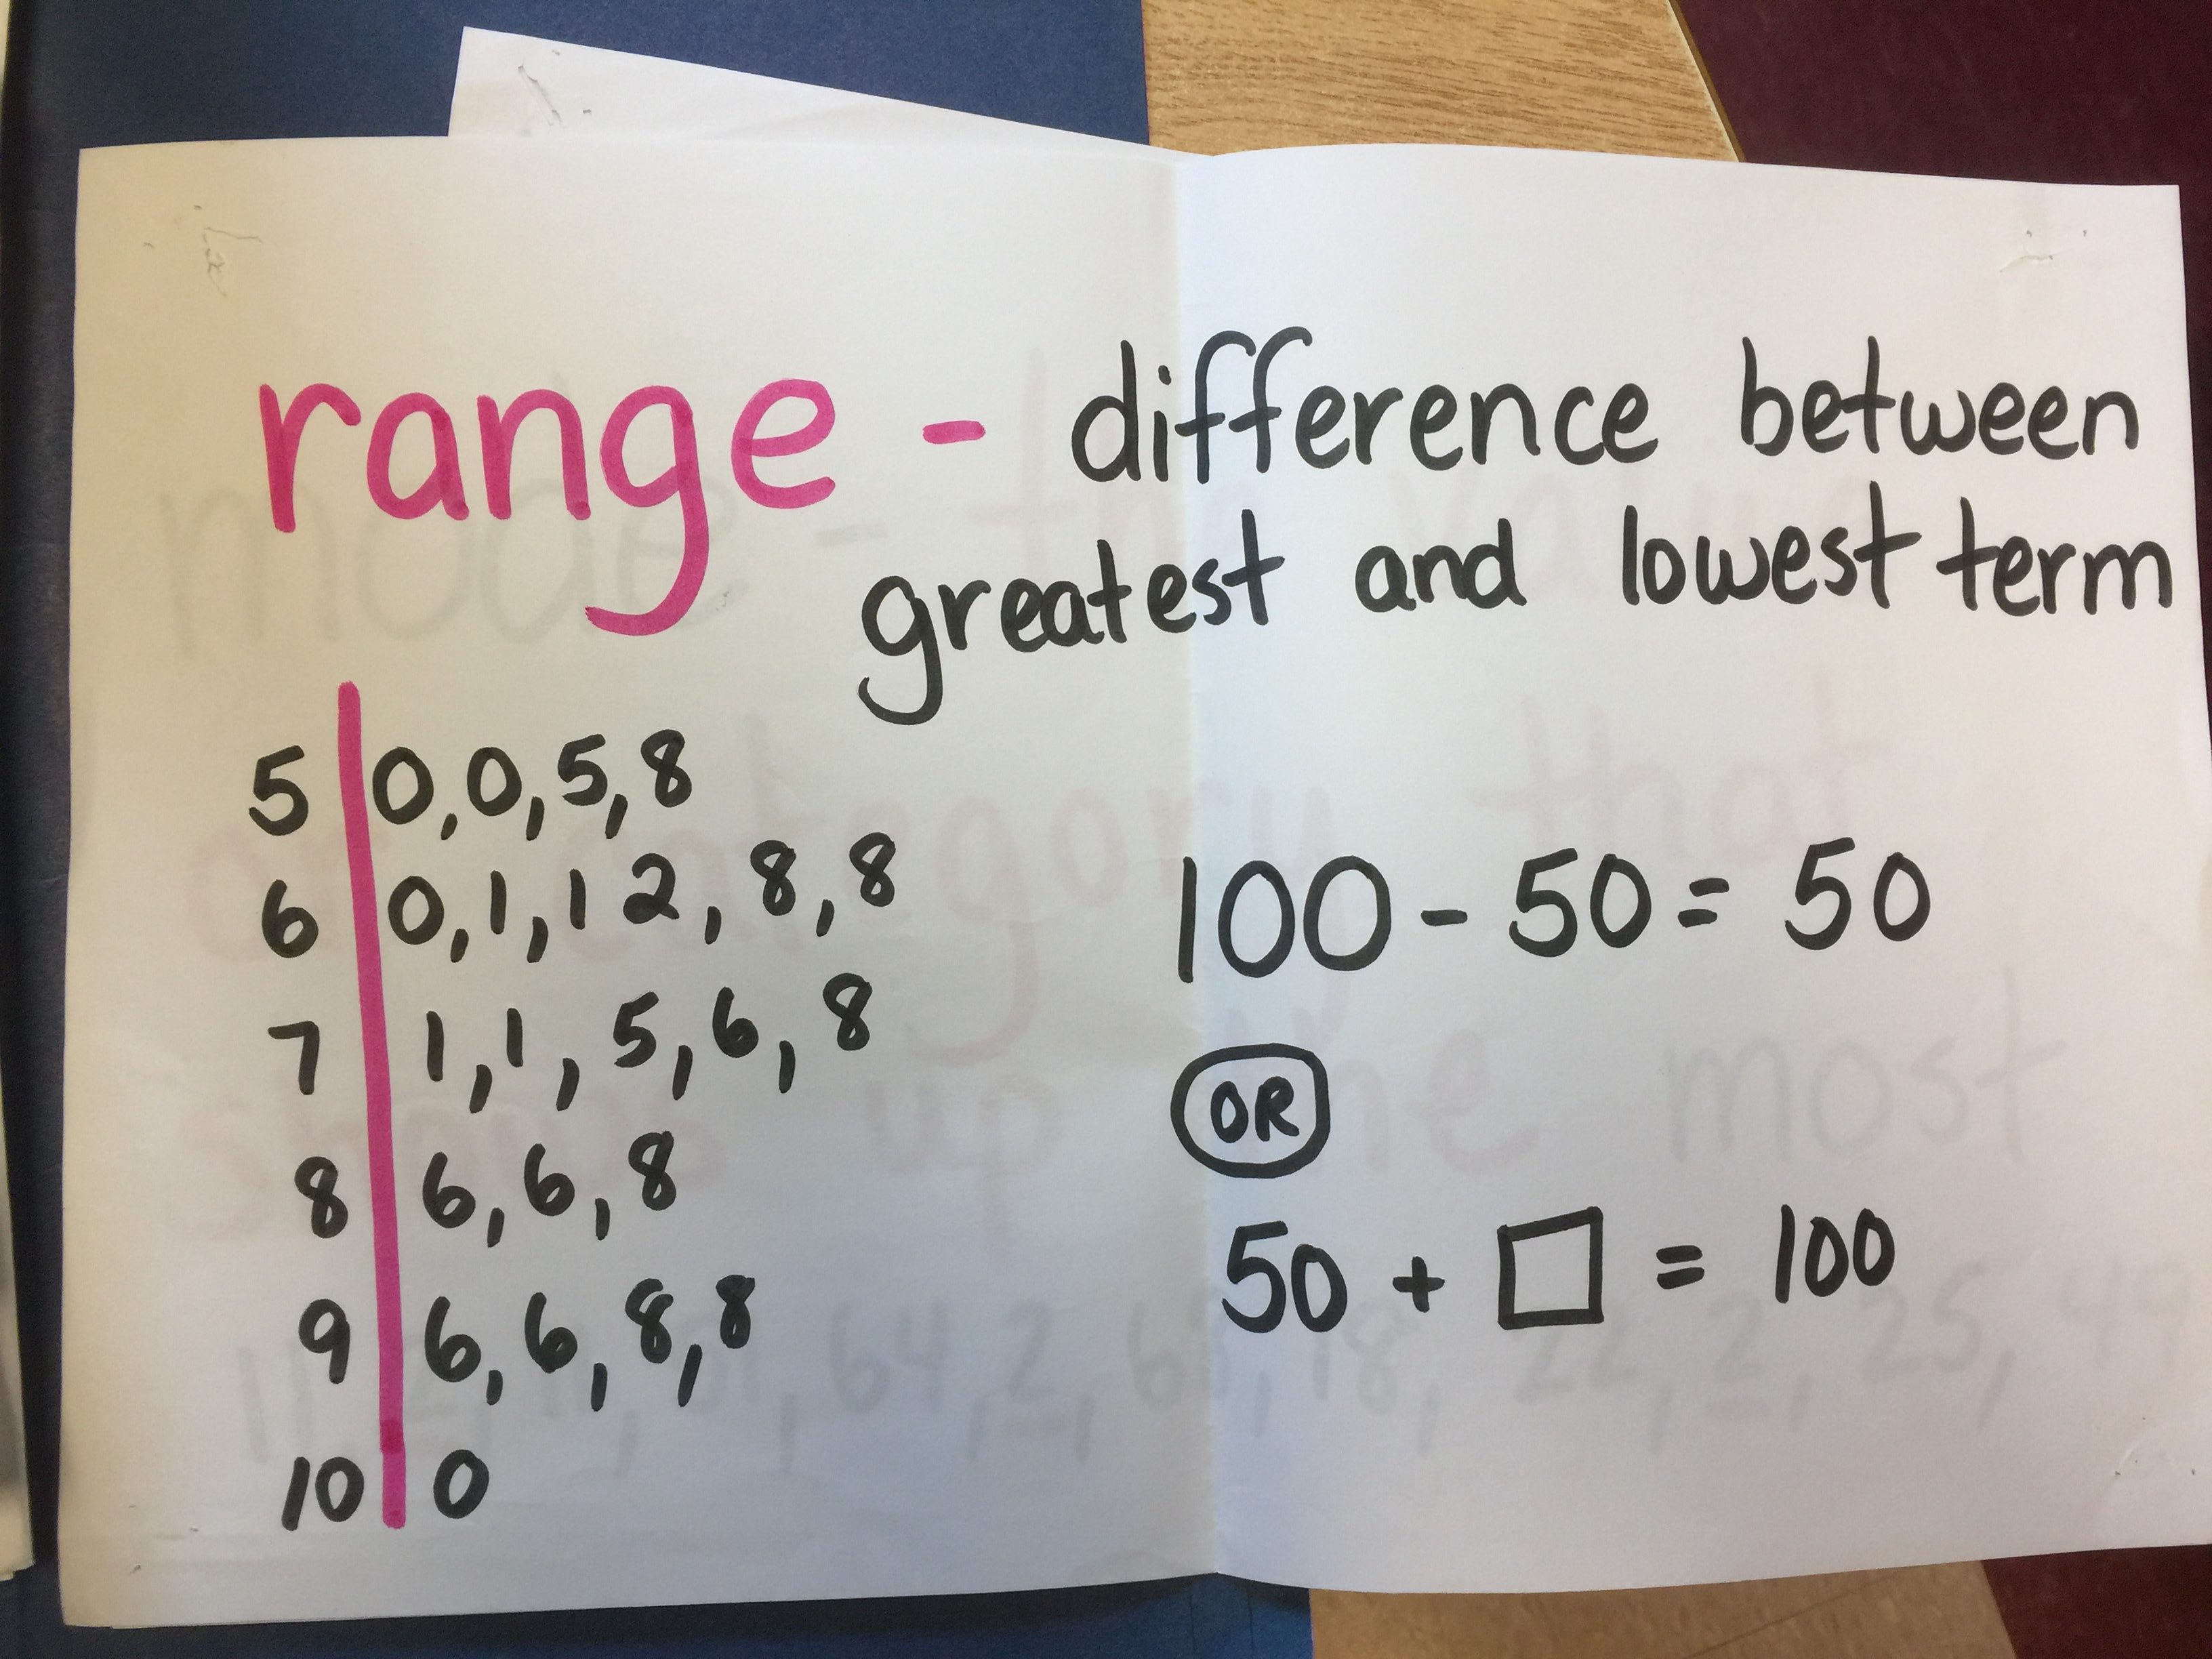 range - difference between
greatest and lowest term
5 | 0,0,5,8
6 | 0,1,1 2,8,8
7 | 1,1,5,6,8
8 | 6,6,8
9 | 6,6,8,8
10 | 0
100 - 50 = 50
OR
50 + □ = 100
mode - the value
or category that
shows up the most